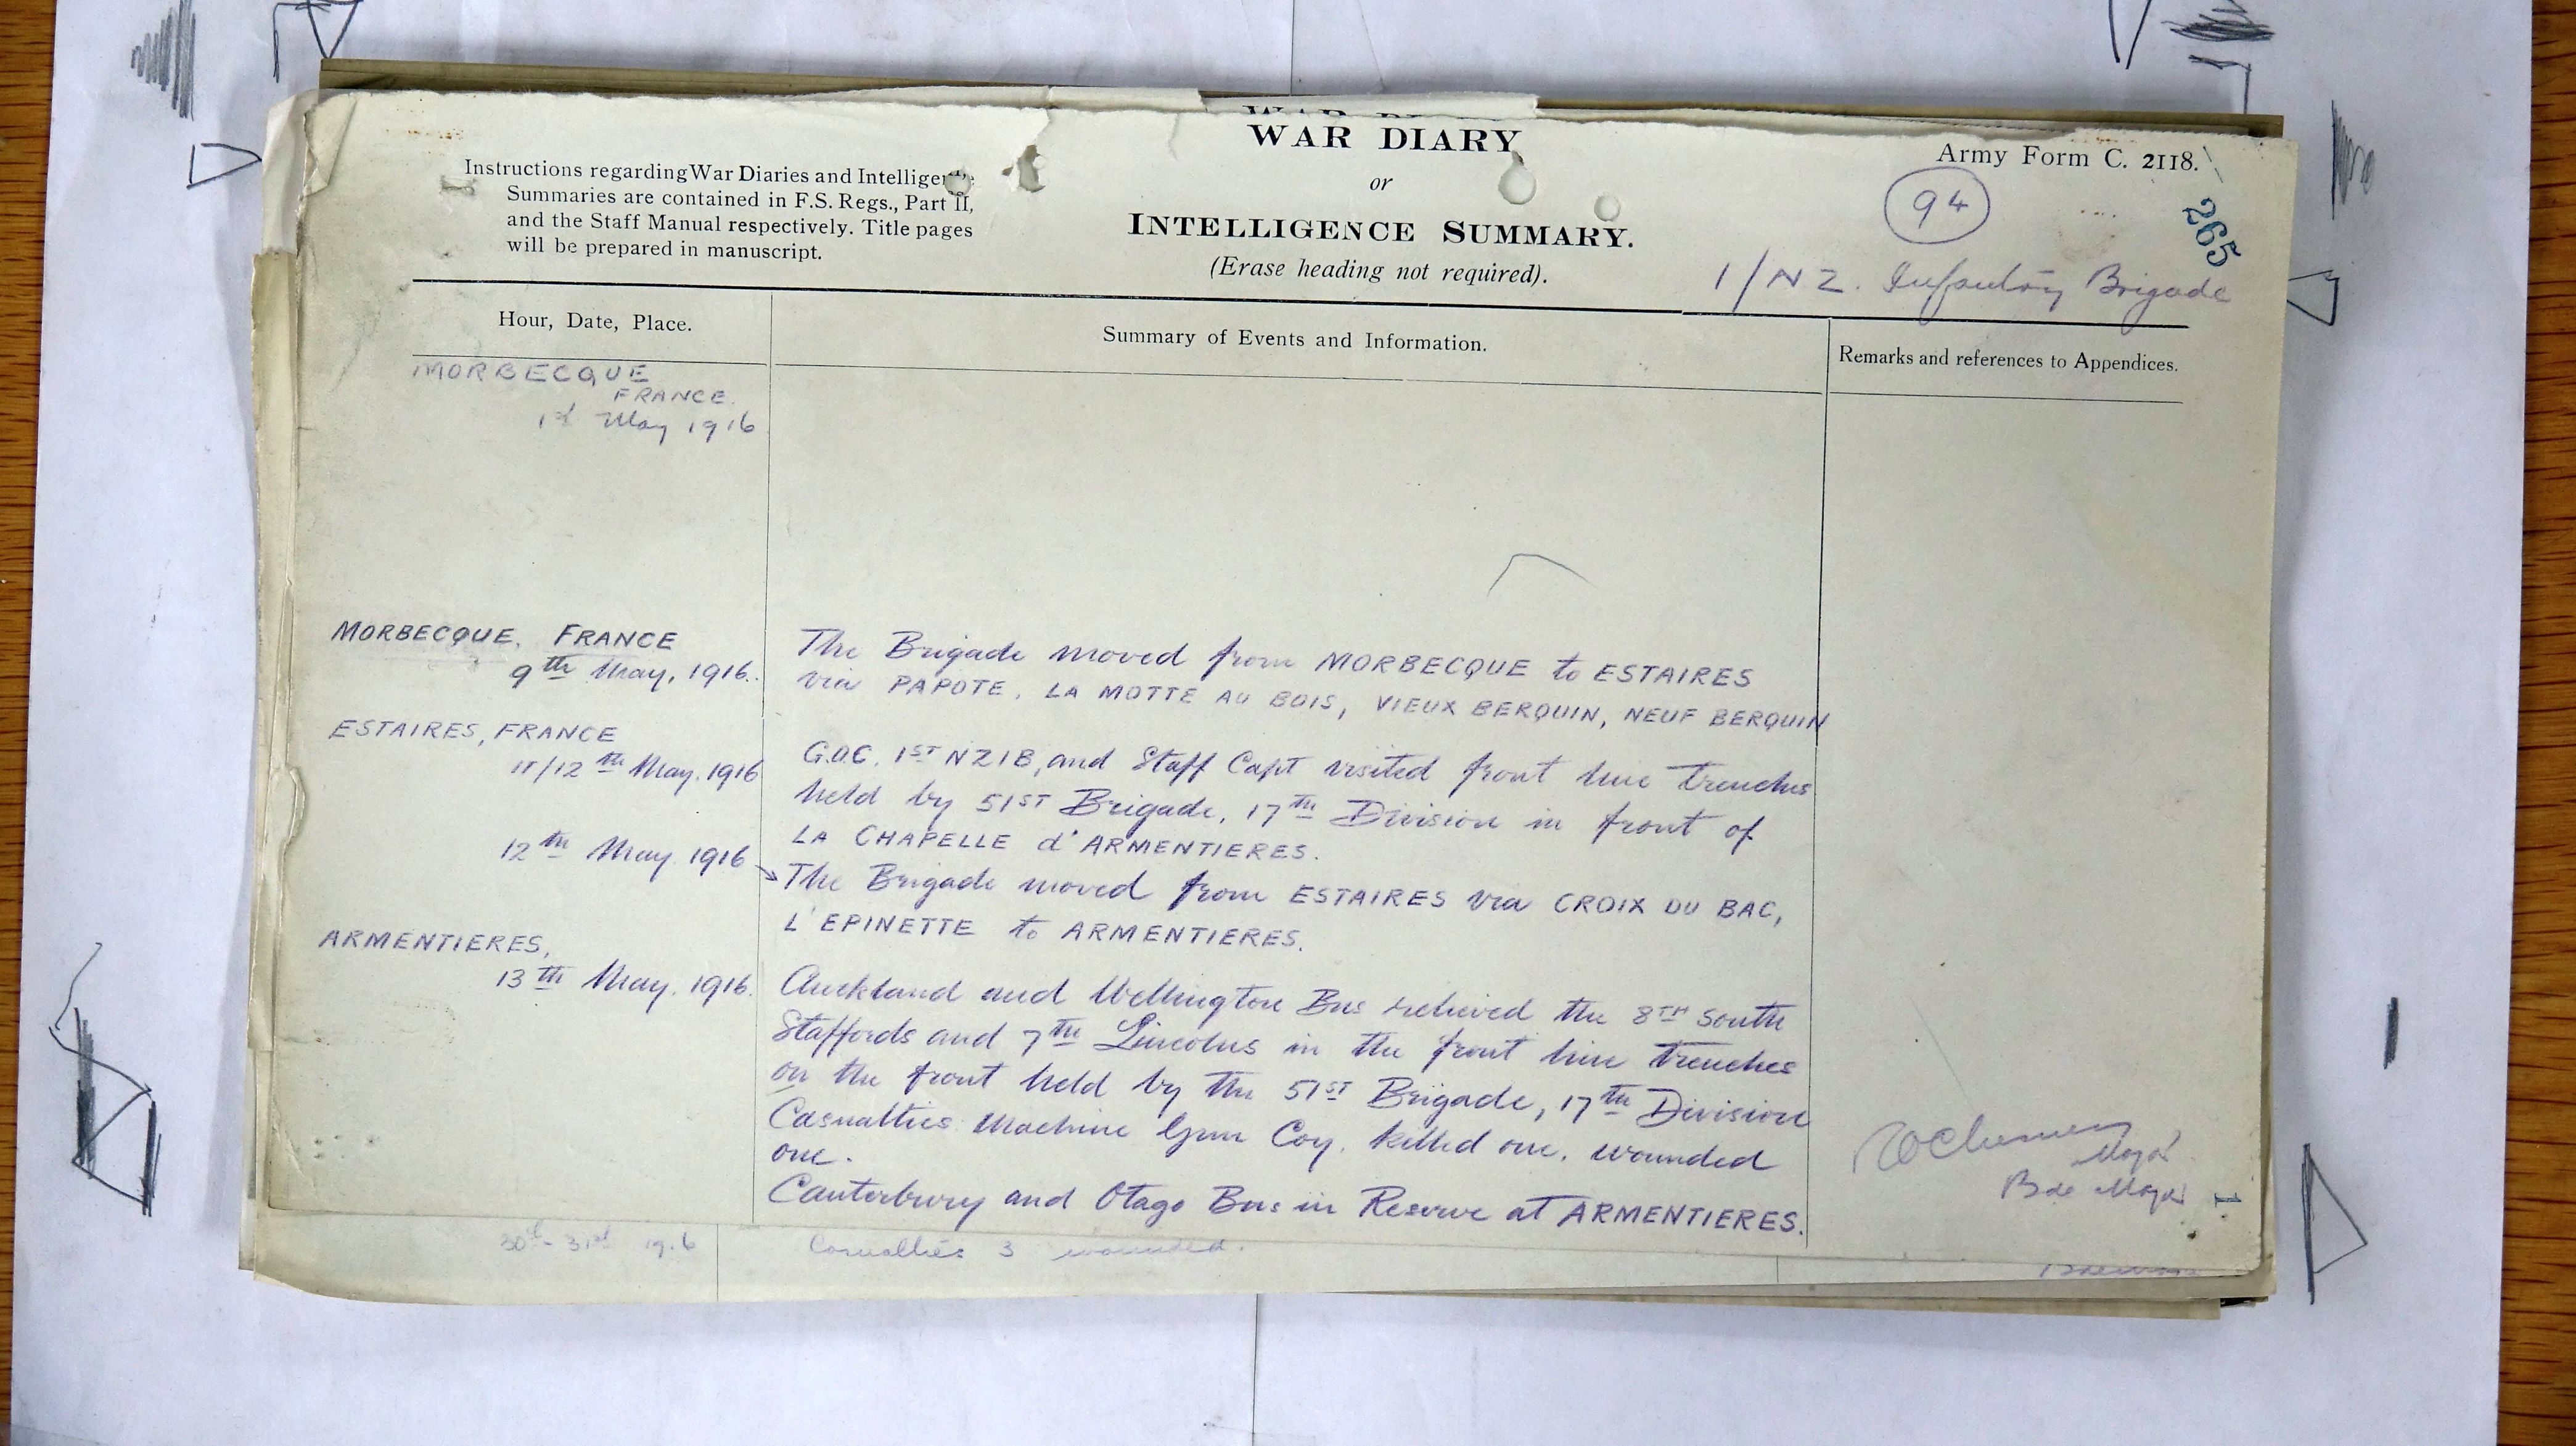 WAR DIARY
or
INTELLIGENCE SUMMARY.
(Erase heading not required).
Instructions regarding War Diaries and Intelligence
Summaries are contained in F.S. Regs., Part II,
and the Staff Manual respectively. Title pages
will be prepared in manuscript.
Army Form C. 2118.
94
265
1/N.Z. Infantry Brigade
Hour, Date, Place.
Summary of Events and Information.
Remarks and references to Appendices.
MORBECQUE
FRANCE.
1st May 1916
MORBECQUE. FRANCE
9th May, 1916.
The Brigade moved from MORBECQUE to ESTAIRES
via PAPOTE, LA MOTTE AU BOIS, VIEUX BERQUIN, NEUF BERQUIN
ESTAIRES, FRANCE
11/12th May. 1916
G.O.C. 1ST NZIB, and Staff Capt visited front line trenches
held by 51ST Brigade, 17th Division in front of
LA CHAPELLE d'ARMENTIERES.
12th May 1916
The Brigade moved from ESTAIRES via CROIX DU BAC,
L'EPINETTE to ARMENTIERES.
ARMENTIERES,
13th May. 1916.
Auckland and Wellington Bns relieved the 8TH South
Staffords and 7th Lincolns in the front line trenches
on the front held by the 51ST Brigade, 17th Division
Casualties Machine Gun Coy. killed one, wounded
one.
Canterbury and Otago Bns in Reserve at ARMENTIERES.
Major
Bde Major
1
30th - 31st 1916
Casualties 3 wounded.